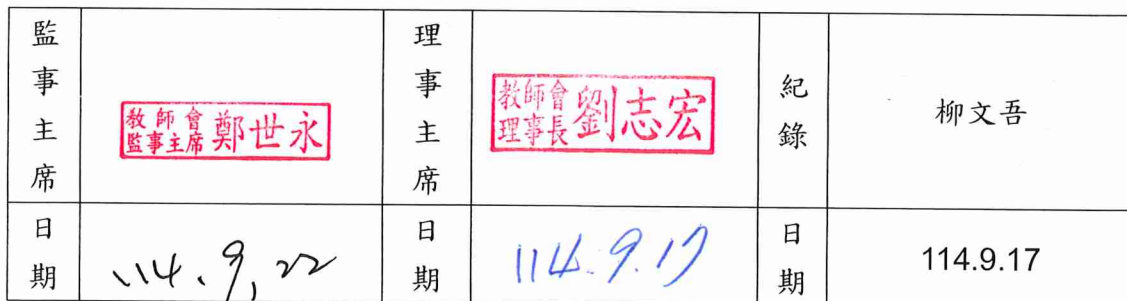 監事主席
教師會
監事主席 鄭世永
理事主席
教師會
理事長 劉志宏
紀錄
柳文吾
日期
114.9.22
日期
114.9.17
日期
114.9.17